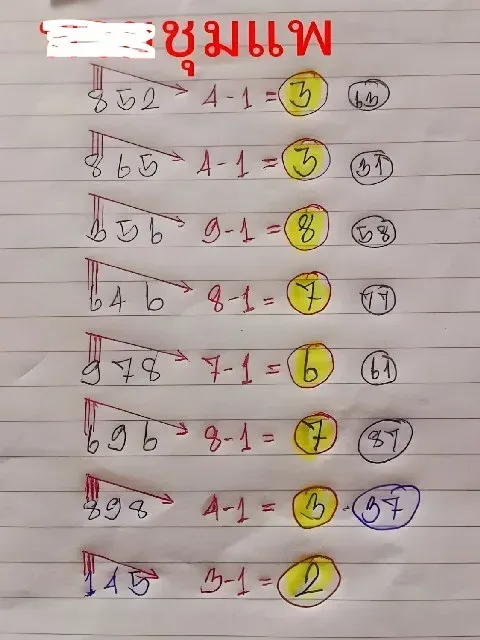 ชุมแพ
852 4-1 = 3 63
865 4-1 = 3 31
656 9-1 = 8 58
646 8-1 = 7 77
978 7-1 = 6 61
696 8-1 = 7 87
898 4-1 = 3 - 37
145 3-1 = 2